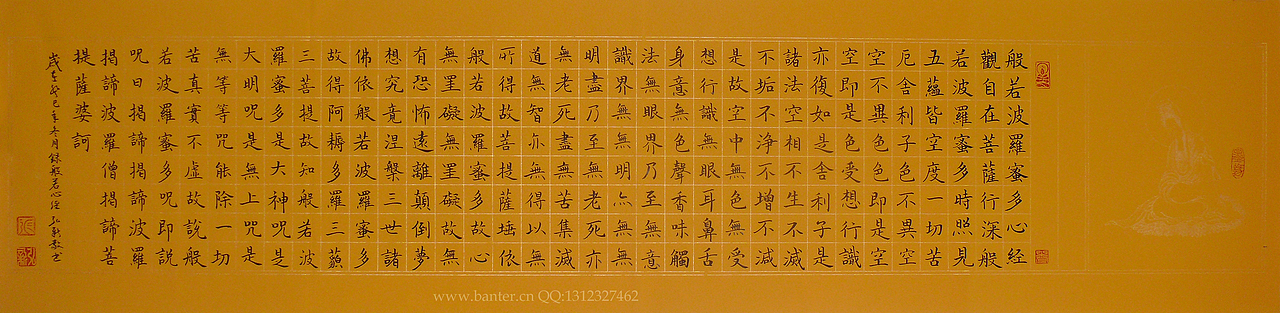 般若波羅蜜多心経
觀自在菩薩行深般
若波羅蜜多時照見
五蘊皆空度一切苦
厄舍利子色不異空
空不異色色即是空
空即是色受想行識
亦復如是舍利子是
諸法空相不生不滅
不垢不淨不增不減
是故空中無色無受
想行識無眼耳鼻舌
身意無色聲香味觸
法無眼界乃至無意
識界無無明亦無無
明盡乃至無老死亦
無老死盡無苦集滅
道無智亦無得以無
所得故菩提薩埵依
般若波羅蜜多故心
無罣礙無罣礙故無
有恐怖遠離顛倒夢
想究竟涅槃三世諸
佛依般若波羅蜜多
故得阿耨多羅三藐
三菩提故知般若波
羅蜜多是大神呪是
大明呪是無上咒是
無等等咒能除一切
苦真實不虛故說般
若波羅蜜多呪即說
呪曰揭諦揭諦波羅
揭諦波羅僧揭諦菩
提薩婆訶
歲在癸巳年冬月錄般若心經敬書
www.banter.cn QQ:1312327462